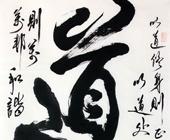 以道修身則正
以道处
道
則
萬邦和諧